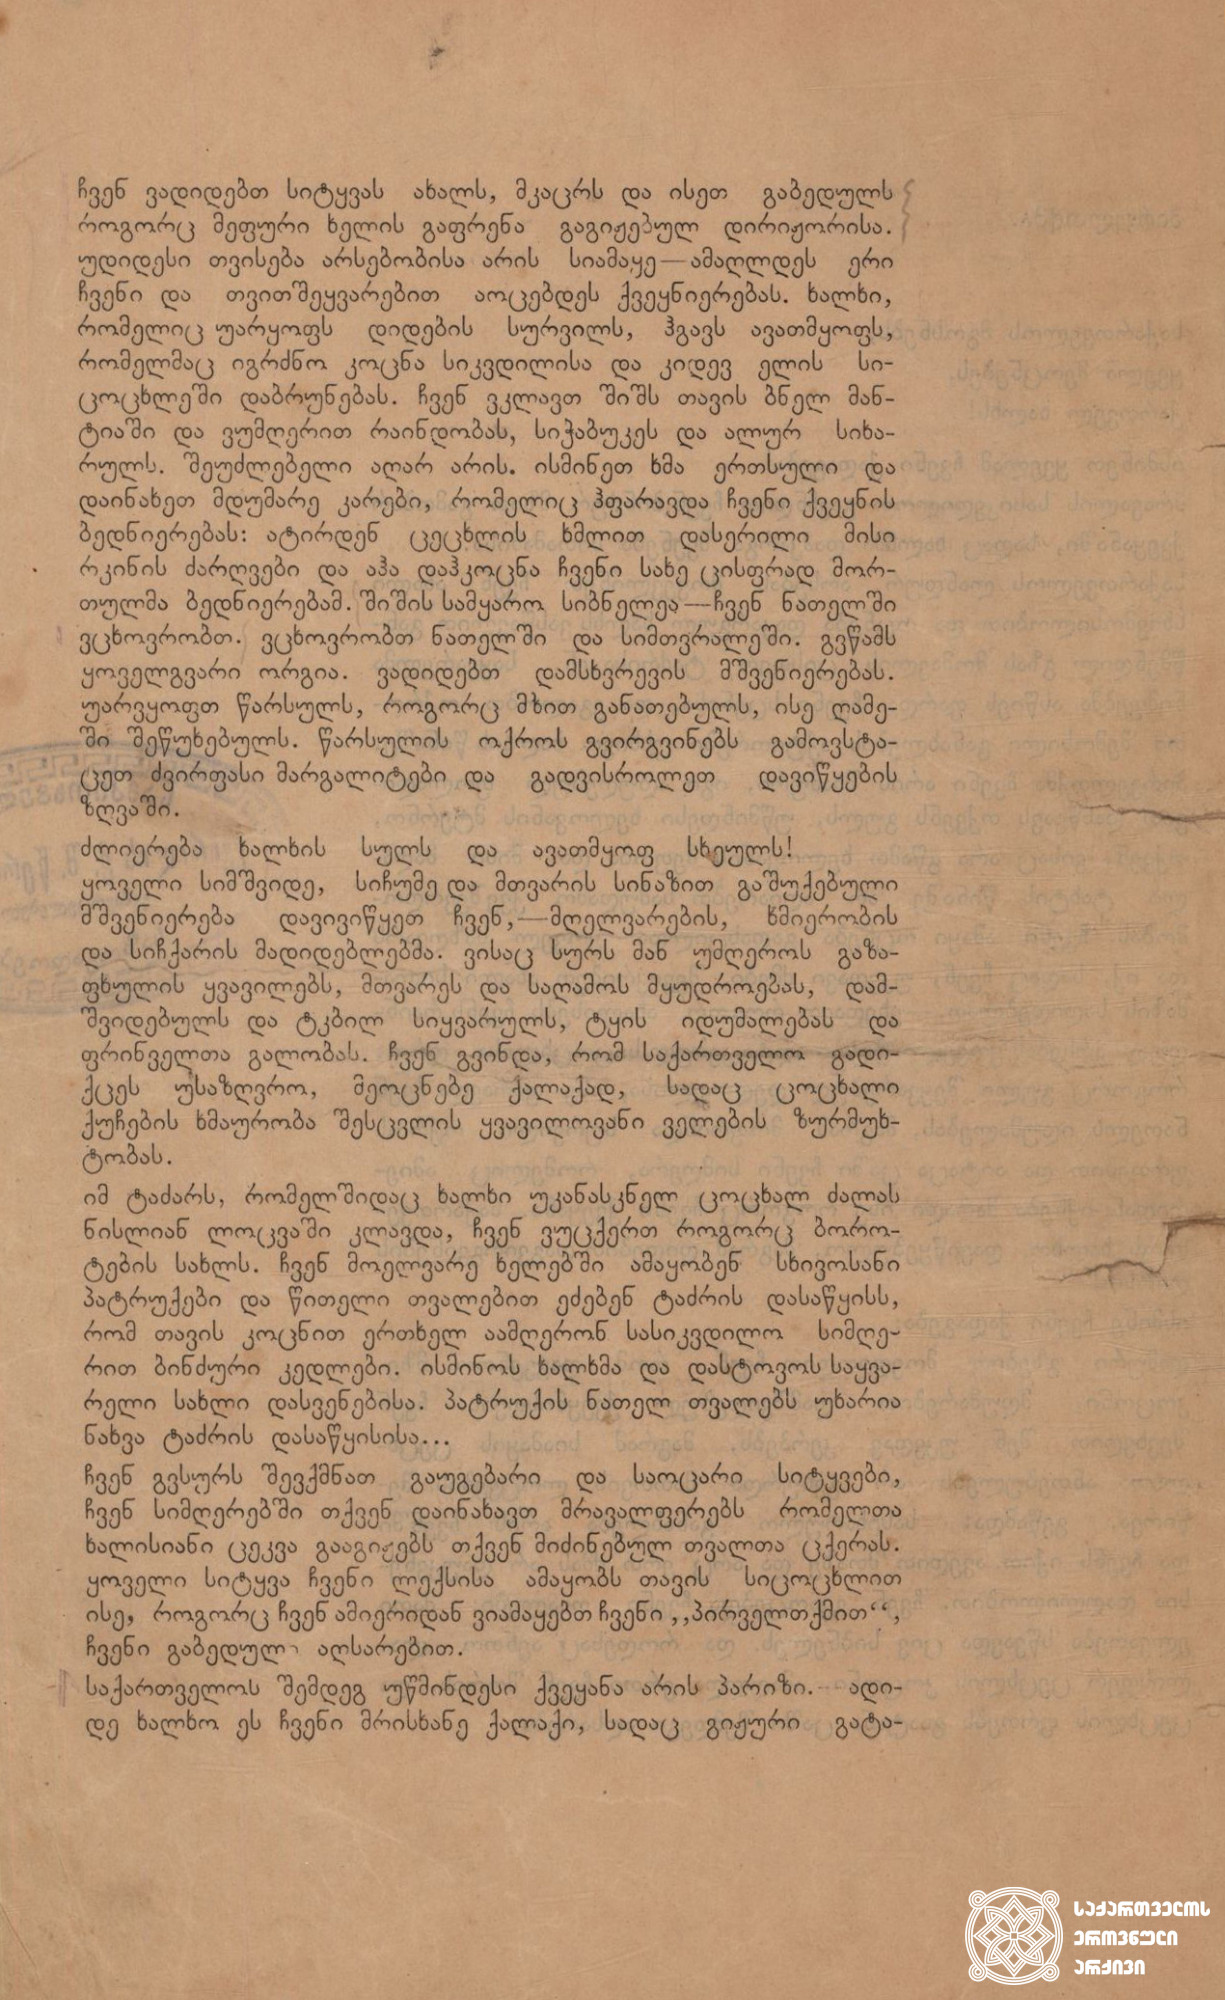 ჩვენ ვადიდებთ სიტყვას ახალს, მკაცრს და ისეთ გაბედულს
როგორც მეფური ხელის გაფრენა გაგიჟებულ დირიჟორისა.
უდიდესი თვისება არსებობისა არის სიამაყე—ამაღლდეს ერი
ჩვენი და თვითშეყვარებით აოცებდეს ქვეყნიერებას. ხალხი,
რომელიც უარყოფს დიდების სურვილს, ჰგავს ავათმყოფს,
რომელმაც იგრძნო კოცნა სიკვდილისა და კიდევ ელის სი-
ცოცხლეში დაბრუნებას. ჩვენ ვკლავთ შიშს თავის ბნელ მან-
ტიაში და ვუმღერით რაინდობას, სიჭაბუკეს და ალურ სიხა-
რულს. შეუძლებელი აღარ არის. ისმინეთ ხმა ერთსული და
დაინახეთ მდუმარე კარები, რომელიც ჰფარავდა ჩვენი ქვეყნის
ბედნიერებას: ატირდენ ცეცხლის ხმლით დასერილი მისი
რკინის ძარღვები და აჰა დაჰკოცნა ჩვენი სახე ცისფრად მორ-
თულმა ბედნიერებამ. შიშის სამყარო სიბნელეა—ჩვენ ნათელში
ვცხოვრობთ. ვცხოვრობთ ნათელში და სიმთვრალეში. გვწამს
ყოველგვარი ორგია. ვადიდებთ დამსხვრევის მშვენიერებას.
უარვყოფთ წარსულს, როგორც მზით განათებულს, ისე ღამე-
ში შეწუხებულს. წარსულის ოქროს გვირგვინებს გამოვსტა-
ცეთ ძვირფასი მარგალიტები და გადვისროლეთ დავიწყების
ზღვაში.
ძლიერება ხალხის სულს და ავათმყოფ სხეულს!
ყოველი სიმშვიდე, სიჩუმე და მთვარის სინაზით გაშუქებული
მშვენიერება დავივიწყეთ ჩვენ,—მღელვარების, ხმიერობის
და სიჩქარის მადიდებლებმა. ვისაც სურს მან უმღეროს გაზა-
ფხულის ყვავილებს, მთვარეს და საღამოს მყუდროებას, დამ-
შვიდებულს და ტკბილ სიყვარულს, ტყის იდუმალებას და
ფრინველთა გალობას. ჩვენ გვინდა, რომ საქართველო გადი-
ქცეს უსაზღვრო, მეოცნებე ქალაქად, სადაც ცოცხალი
ქუჩების ხმაურობა შესცვლის ყვავილოვანი ველების ზურმუხ-
ტობას.
იმ ტაძარს, რომელშიდაც ხალხი უკანასკნელ ცოცხალ ძალას
ნისლიან ლოცვაში კლავდა, ჩვენ ვუცქერთ როგორც ბორო-
ტების სახლს. ჩვენ მოელვარე ხელებში ამაყობენ სხივოსანი
პატრუქები და წითელი თვალებით ეძებენ ტაძრის დასაწყისს,
რომ თავის კოცნით ერთხელ აამღერონ სასიკვდილო სიმღე-
რით ბინძური კედლები. ისმინოს ხალხმა და დასტოვოს საყვა-
რელი სახლი დასვენებისა. პატრუქის ნათელ თვალებს უხარია
ნახვა ტაძრის დასაწყისისა...
ჩვენ გვსურს შევქმნათ გაუგებარი და საოცარი სიტყვები,
ჩვენ სიმღერებში თქვენ დაინახავთ მრავალფერებს რომელთა
ხალისიანი ცეკვა გააგიჟებს თქვენ მიძინებულ თვალთა ცქერას.
ყოველი სიტყვა ჩვენი ლექსისა ამაყობს თავის სიცოცხლით
ისე, როგორც ჩვენ ამიერიდან ვიამაყებთ ჩვენი ,,პირველთქმით“,
ჩვენი გაბედულ აღსარებით.
საქართველოს შემდეგ უწმინდესი ქვეყანა არის პარიზი. ადი-
დე ხალხო ეს ჩვენი მრისხანე ქალაქი, სადაც გიჟური გატა-
საქართველოს
ეროვნული
არქივი